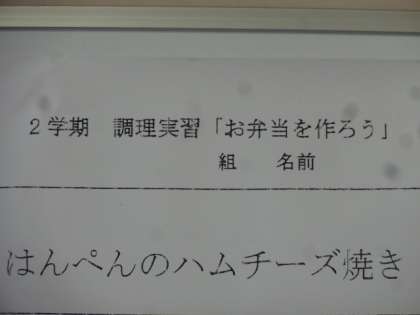 2学期　調理実習「お弁当を作ろう」
組　名前
はんぺんのハムチーズ焼き